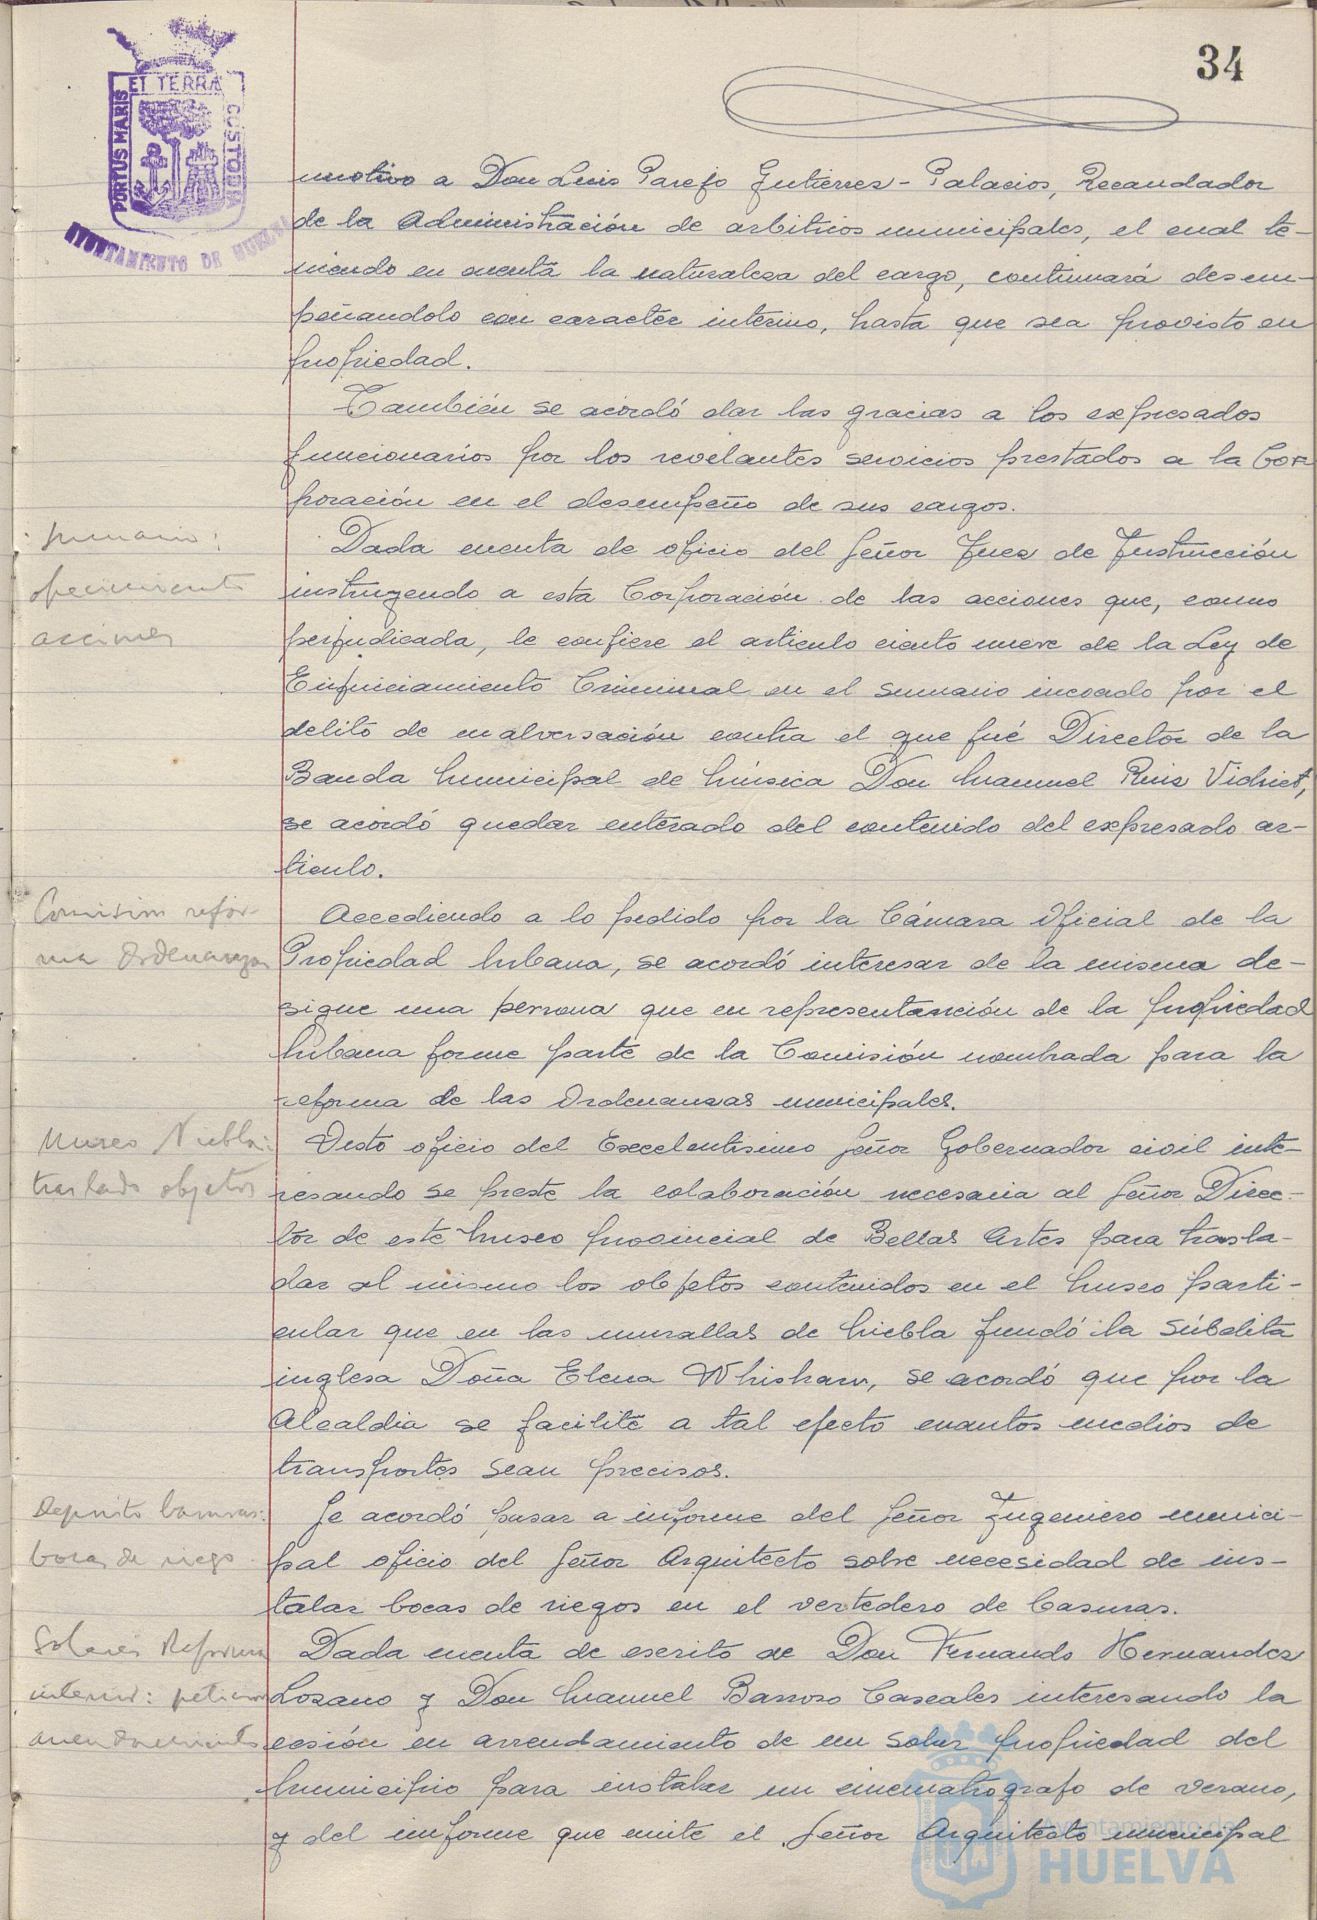 34
PORTUS MARIS ET TERRÆ CUSTODIA
AYUNTAMIENTO DE HUELVA
motivo a Don Luis Parejo Gutierrez-Palacios, Recaudador
de la Administración de arbitrios municipales, el cual te-
niendo en cuenta la naturaleza del cargo, continuará desem-
peñandolo con caracter interino, hasta que sea provisto en
propiedad.
También se acordó dar las gracias a los expresados
funcionarios por los revelantes servicios prestados a la Cor
poración en el desempeño de sus cargos.
Sumario:
ofrecimiento
acciones
Dada cuenta de oficio del Señor Juez de Instrucción
instruyendo a esta Corporación de las acciones que, como
perjudicada, le confiere el articulo ciento nueve de la Ley de
Enjuiciamiento Criminal en el sumario incoado por el
delito de malversación contra el que fué Director de la
Banda Municipal de Música Don Manuel Ruiz Vidriet,
se acordó quedar enterado del contenido del expresado ar-
ticulo.
Comision refor-
ma Ordenanzas
Accediendo a lo pedido por la Cámara Oficial de la
Propiedad Urbana, se acordó interesar de la misma de-
signe una persona que en representanción de la propiedad
Urbana forme parte de la Comisión nombrada para la
reforma de las Ordenanzas municipales.
Museo Niebla:
traslado objetos
Visto oficio del Excelentisimo Señor Gobernador civil inte-
resando se preste la colaboración necesaria al Señor Direc-
tor de este Museo provincial de Bellas Artes para trasla-
dar al mismo los objetos contenidos en el Museo parti-
cular que en las murallas de Niebla fundó la súbdita
inglesa Doña Elena Whishaw, se acordó que por la
Alcaldia se facilite a tal efecto cuantos medios de
transportes sean precisos.
Deposito basuras:
bocas de riego
Se acordó pasar a informe del Señor Ingeniero munici-
pal oficio del Señor Arquitecto sobre necesidad de ins-
talar bocas de riegos en el vertedero de basuras.
Solares Reforma
interior: peticion
arrendamiento
Dada cuenta de escrito de Don Fernando Hernandez
Lozano y Don Manuel Barroso Cascales interesando la
cesión en arrendamiento de un solar propiedad del
Municipio para instalar un cinematografo de verano,
y del imforme que emite el Señor Arquitecto municipal
Ayuntamiento de
HUELVA